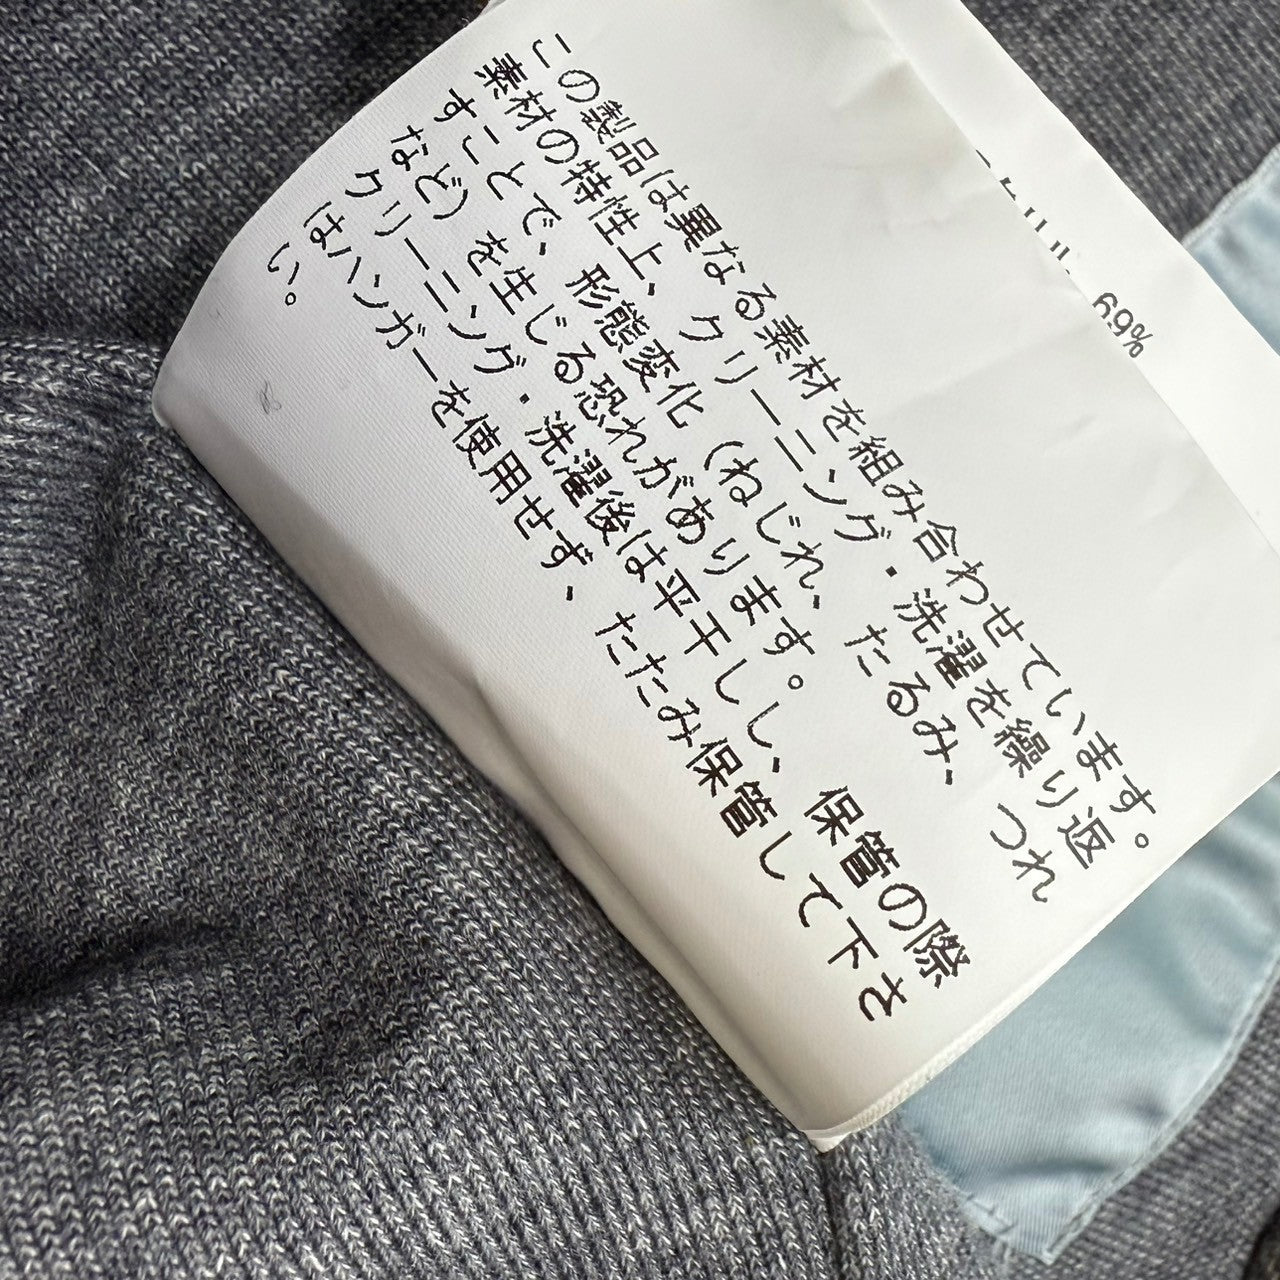 この製品は異なる素材を組み合わせています。
素材の特性上、クリーニング・洗濯を繰り返
すことで、形態変化（ねじれ、たるみ、つれ
など）を生じる恐れがあります。
クリーニング・洗濯後は平干しし、保管の際
はハンガーを使用せず、たたみ保管して下さ
い。
69%